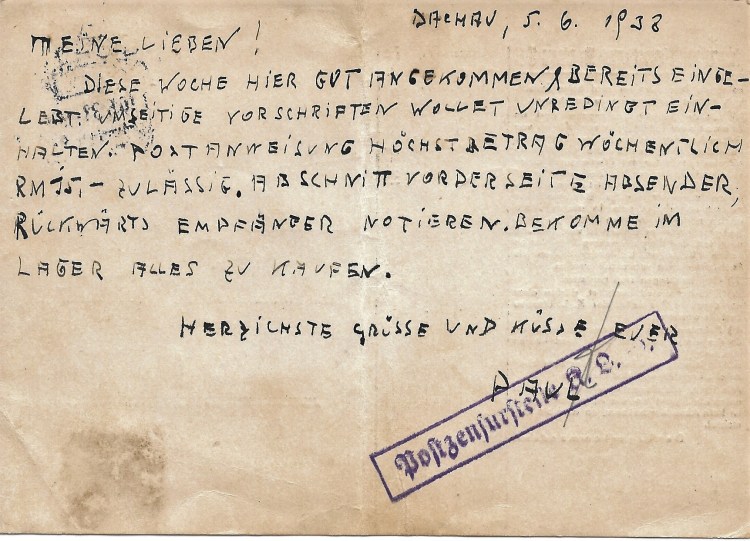 DACHAU, 5. 6. 1938
MEINE LIEBEN!
DIESE WOCHE HIER GUT ANGEKOMMEN & BEREITS EINGE-
LEBT. UMSEITIGE VORSCHRIFTEN WOLLET UNBEDINGT EIN-
HALTEN. POSTANWEISUNG HÖCHSTBETRAG WÖCHENTLICH
RM 15.- ZULÄSSIG. ABSCHNITT VORDERSEITE ABSENDER,
RÜCKWÄRTS EMPFÄNGER NOTIEREN. BEKOMME IM
LAGER ALLES ZU KAUFEN.
HERZICHSTE GRÜSSE UND KÜSSE EUER
PAUL
Postzensurstelle K. L.